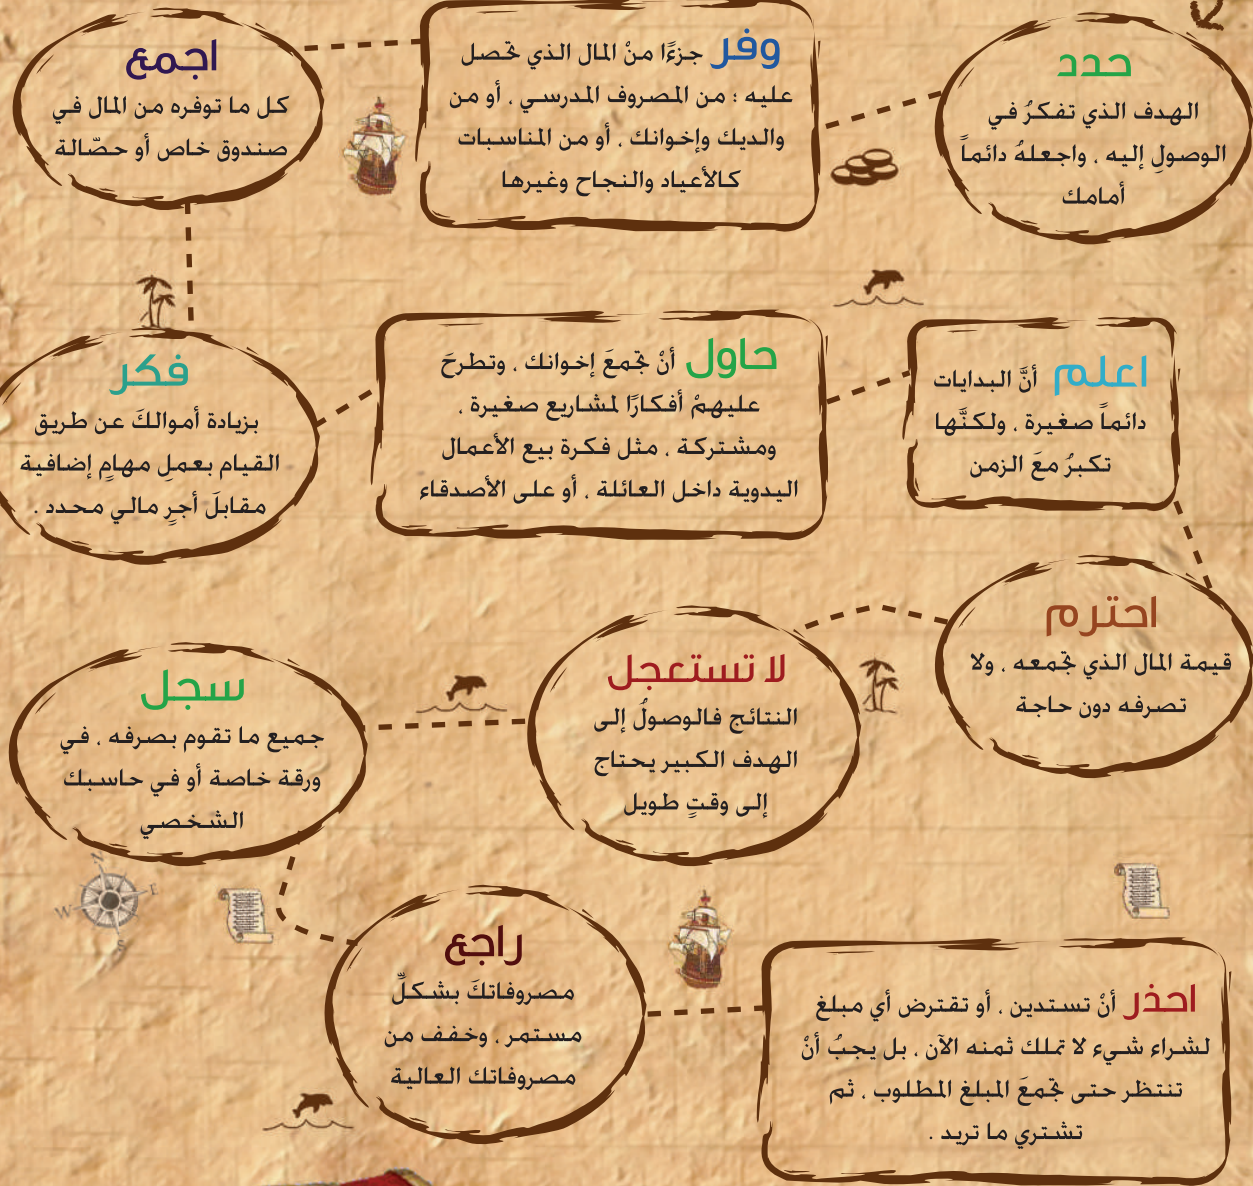 حدد
الهدف الذي تفكرُ في
الوصولِ إليه ، واجعلهُ دائماً
أمامك
وفر جزءًا منْ المال الذي تحصل
عليه : من المصروف المدرسي ، أو من
والديك وإخوانك ، أو من المناسبات
كالأعياد والنجاح وغيرها
اجمع
كل ما توفره من المال في
صندوق خاص أو حصّالة
فكر
بزيادة أموالكَ عن طريق
القيام بعملِ مهامٍ إضافية
مقابلَ أجرٍ مالي محدد .
حاول أنْ تجمعَ إخوانك ، وتطرحَ
عليهمْ أفكارًا لمشاريع صغيرة ،
ومشتركة ، مثل فكرة بيع الأعمال
اليدوية داخل العائلة ، أو على الأصدقاء
اعلم أنَّ البدايات
دائماً صغيرة ، ولكنَّها
تكبرُ معَ الزمن
احترم
قيمة المال الذي تجمعه ، ولا
تصرفه دون حاجة
لا تستعجل
النتائج فالوصولُ إلى
الهدف الكبير يحتاج
إلى وقتٍ طويل
سجل
جميع ما تقوم بصرفه ، في
ورقة خاصة أو في حاسبك
الشخصي
راجع
مصروفاتكَ بشكلٍّ
مستمر ، وخفف من
مصروفاتك العالية
احذر أنْ تستدين ، أو تقترض أي مبلغ
لشراء شيء لا تملك ثمنه الآن ، بل يجبُ أنْ
تنتظر حتى تجمعَ المبلغ المطلوب ، ثم
تشتري ما تريد .
N
W E
S